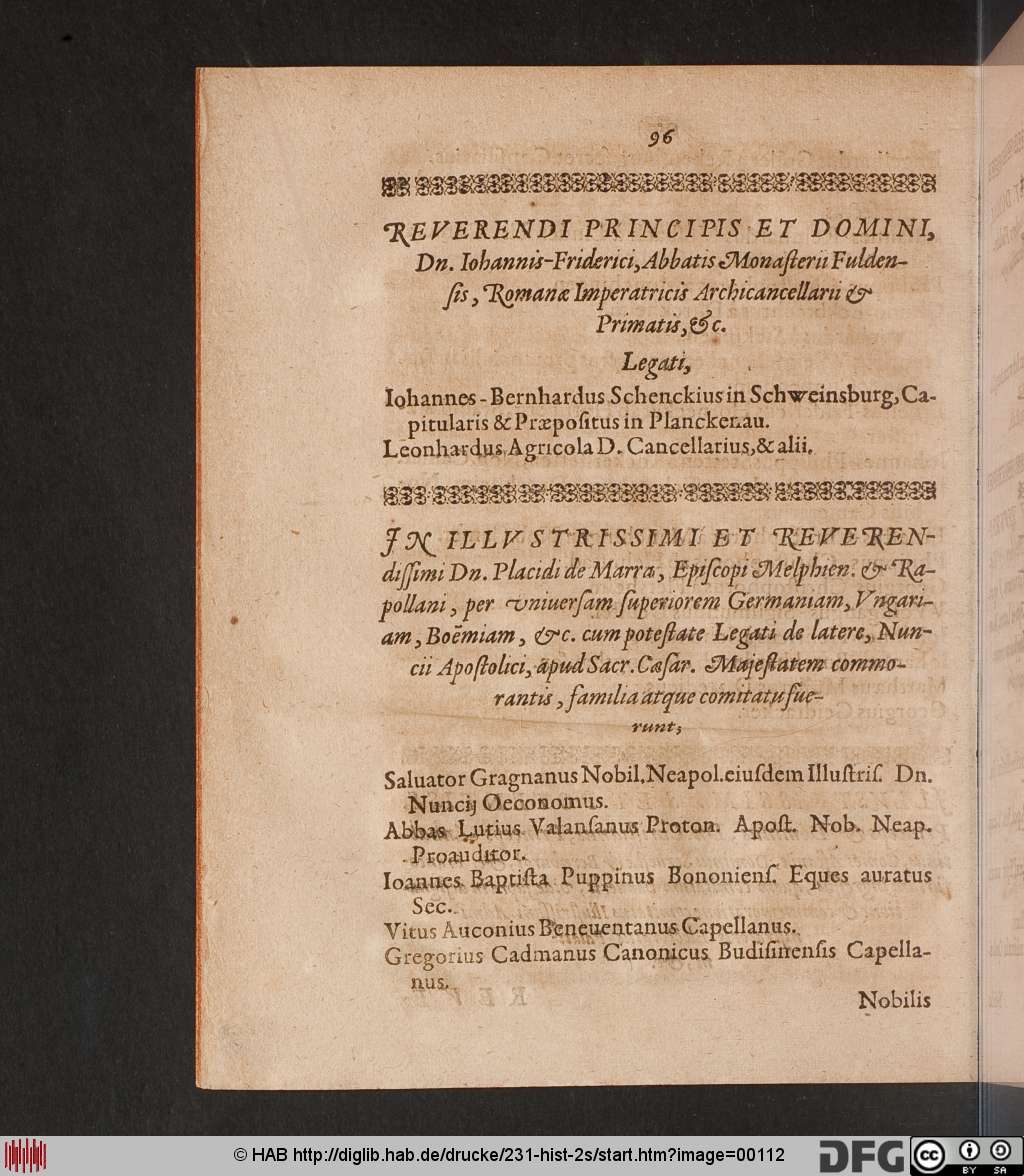 96
REVERENDI PRINCIPIS ET DOMINI,
Dn. Iohannis-Friderici, Abbatis Monaſterii Fulden-
ſis, Romanæ Imperatricis Archicancellarii &
Primatis, &c.
Legati,
Iohannes-Bernhardus Schenckius in Schweinsburg, Ca-
pitularis & Præpoſitus in Planckenau.
Leonhardus Agricola D. Cancellarius, & alii.
IN ILLVSTRISSIMI ET REVEREN-
diſſimi Dn. Placidi de Marra, Epiſcopi Melphien. & Ra-
pollani, per vniuerſam ſuperiorem Germaniam, Vngari-
am, Boëmiam, &c. cum poteſtate Legati de latere, Nun-
cii Apoſtolici, apud Sacr. Cæſar. Majeſtatem commo-
rantis, familia atque comitatu fue-
runt;
Saluator Gragnanus Nobil. Neapol. eiuſdem Illuſtriſ. Dn.
Nuncij Oeconomus.
Abbas Lutius Valanſanus Proton. Apoſt. Nob. Neap.
Proauditor.
Ioannes Baptiſta Puppinus Bononienſ. Eques auratus
Sec.
Vitus Auconius Beneuentanus Capellanus.
Gregorius Cadmanus Canonicus Budiſinenſis Capella-
nus.
Nobilis
© HAB http://diglib.hab.de/drucke/231-hist-2s/start.htm?image=00112
DFG
cc
BY SA